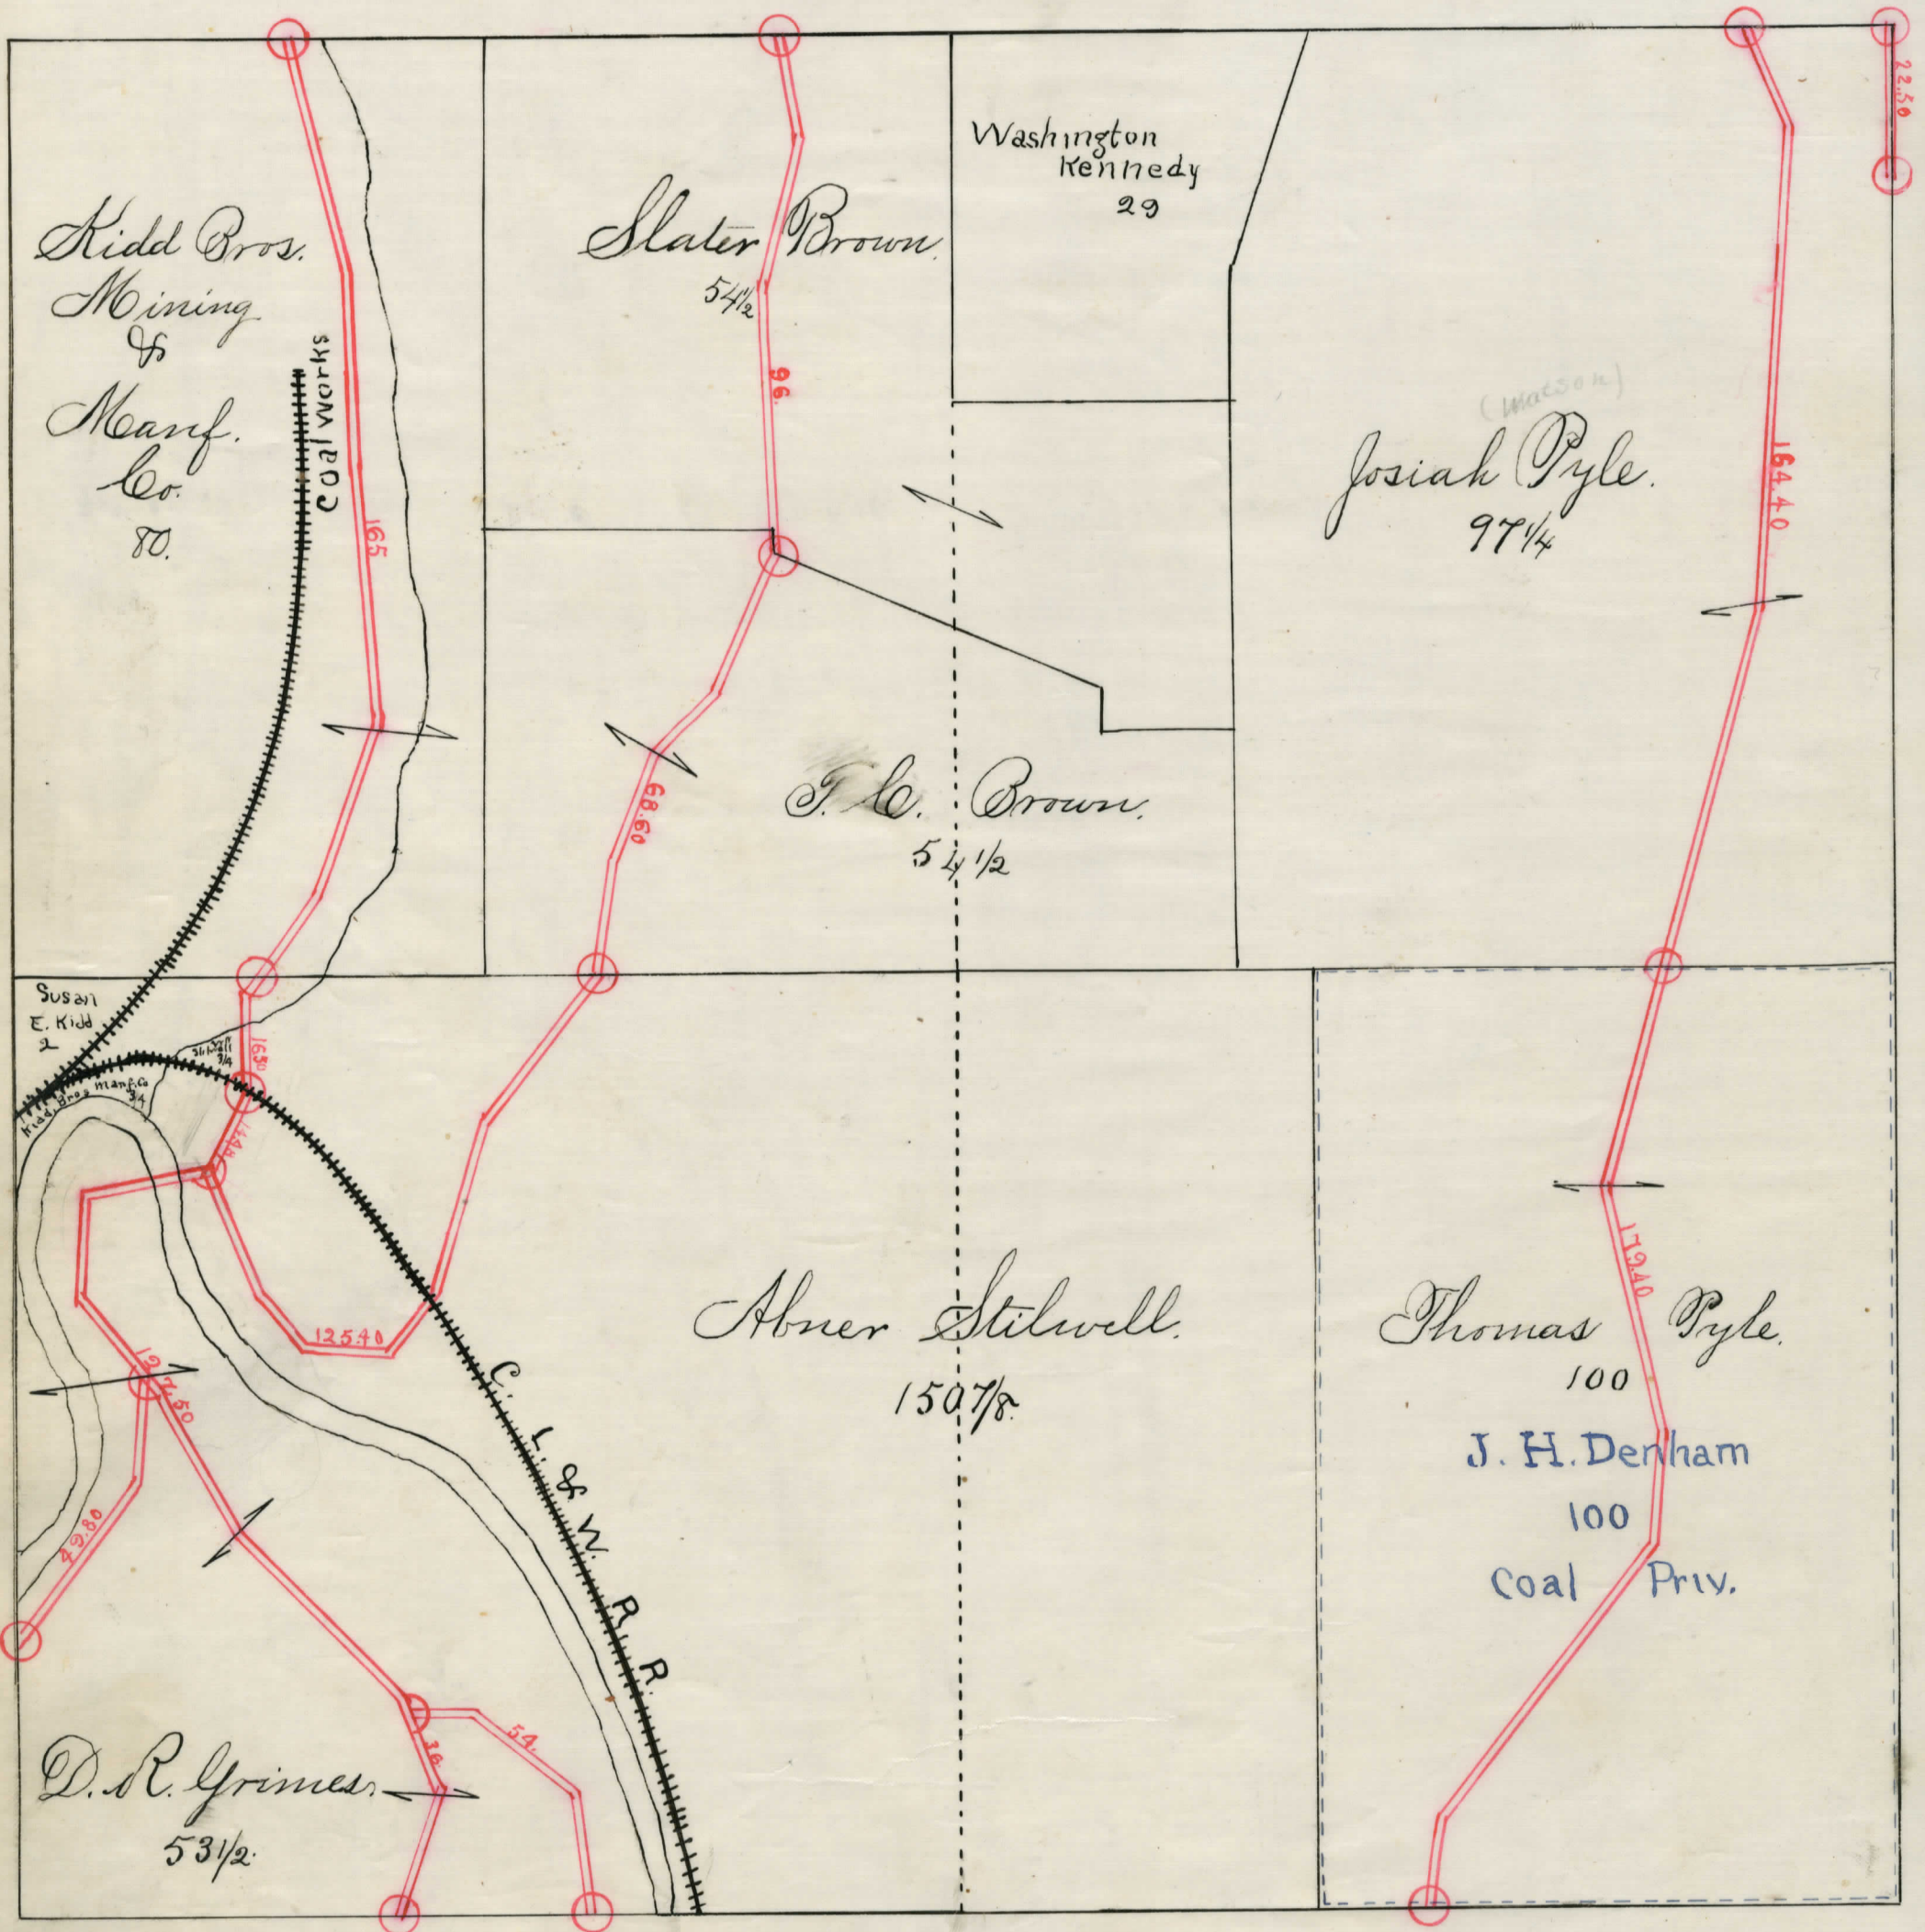 Kidd Bros.
Mining
&
Manf.
Co.
80.
Coal Works
165
Slater Brown.
54 1/2
96.
Washington
Kennedy
29
(Watson)
Josiah Pyle.
97 1/4
164.40
22.50
68.60
T. C. Brown.
54 1/2
Susan
E. Kidd
2
3/4
Kidd Bros Manf. Co
3/4
16.50
125.40
Abner Stilwell.
150 7/8.
C. L. & W. R. R.
Thomas Pyle.
100
179.40
J. H. Denham
100
Coal Priv.
127.50
49.80
D. R. Grimes.
53 1/2.
36
54.